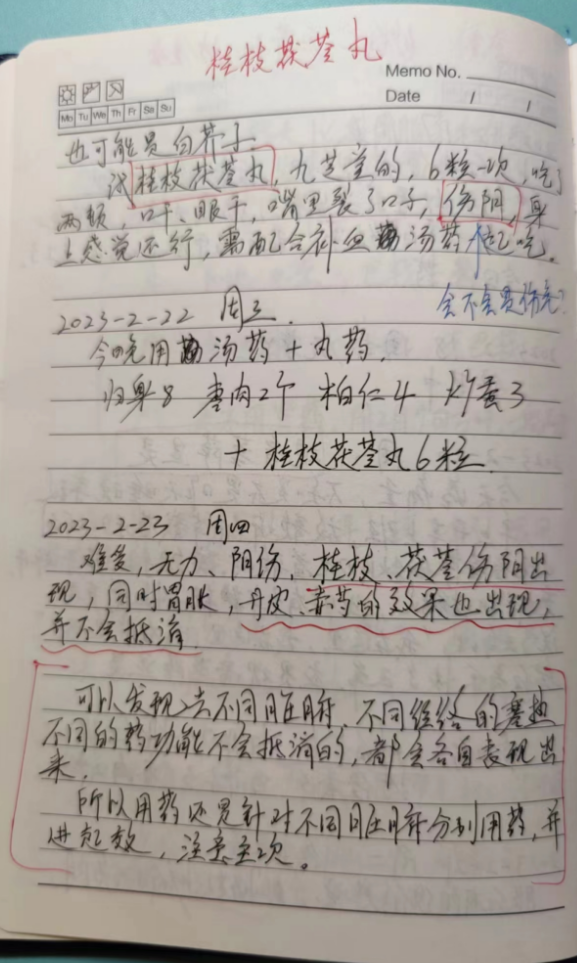 桂枝茯苓丸
Memo No.
Date / /
Mo Tu We Th Fr Sa Su
也可能是白芥子.
试桂枝茯苓丸,九芝堂的,6粒一次,吃了
两顿,口干、眼干,嘴里裂了口子,伤阴,身
上感觉还行,需配合补血汤药一起吃。
会不会是伤先?
2023-2-22 周三.
今晚用汤药+丸药.
归身8 枣肉2个 柏仁4 炒蛋3
+ 桂枝茯苓丸6粒.
2023-2-23 周四
难受,无力、阴伤,桂枝、茯苓伤阴出
现,同时胃胀,丹皮、赤芍的效果也出现,
并不会抵消.
可以发现去不同脏腑、不同经络的寒热
不同的药功能不会抵消的,都会各自表现出
来.
所以用药还是针对不同脏腑分别用药,并
进起效,注意主次。